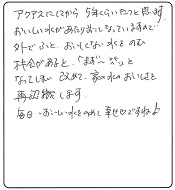 アクアスにしてから 5年くらいたつと思います。
おいしい水があたりまえになっていますので
外でふと、おいしくない水をのむ
機会があると、「まず〜い」と
なってしまい 改めて、家の水のおいしさを
再認識します。
毎日、おいしい水をのめて 幸せですね♪